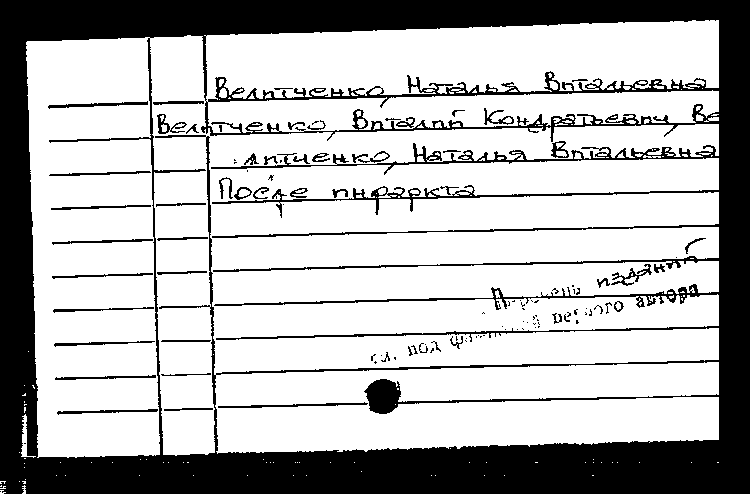 Велитченко, Наталья Витальевна
Велитченко, Виталий Кондратьевич, Ве
литченко, Наталья Витальевна
После инфаркта
Перечень изданий
см. под фамилией первого автора